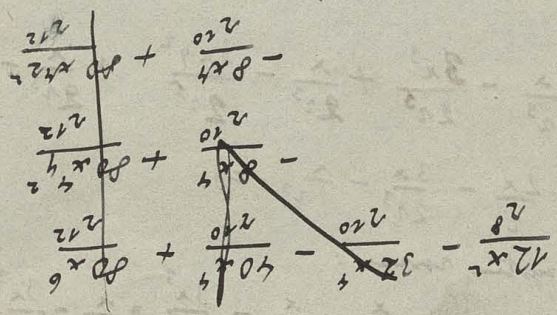 12x²/r⁸ − 32x⁴/r¹⁰ − 40x⁴/r¹⁰ + 80x⁶/r¹²
− 8x⁴/r¹⁰ + 80x⁴y²/r¹²
− 8x⁴/r¹⁰ + 80x⁴z²/r¹²